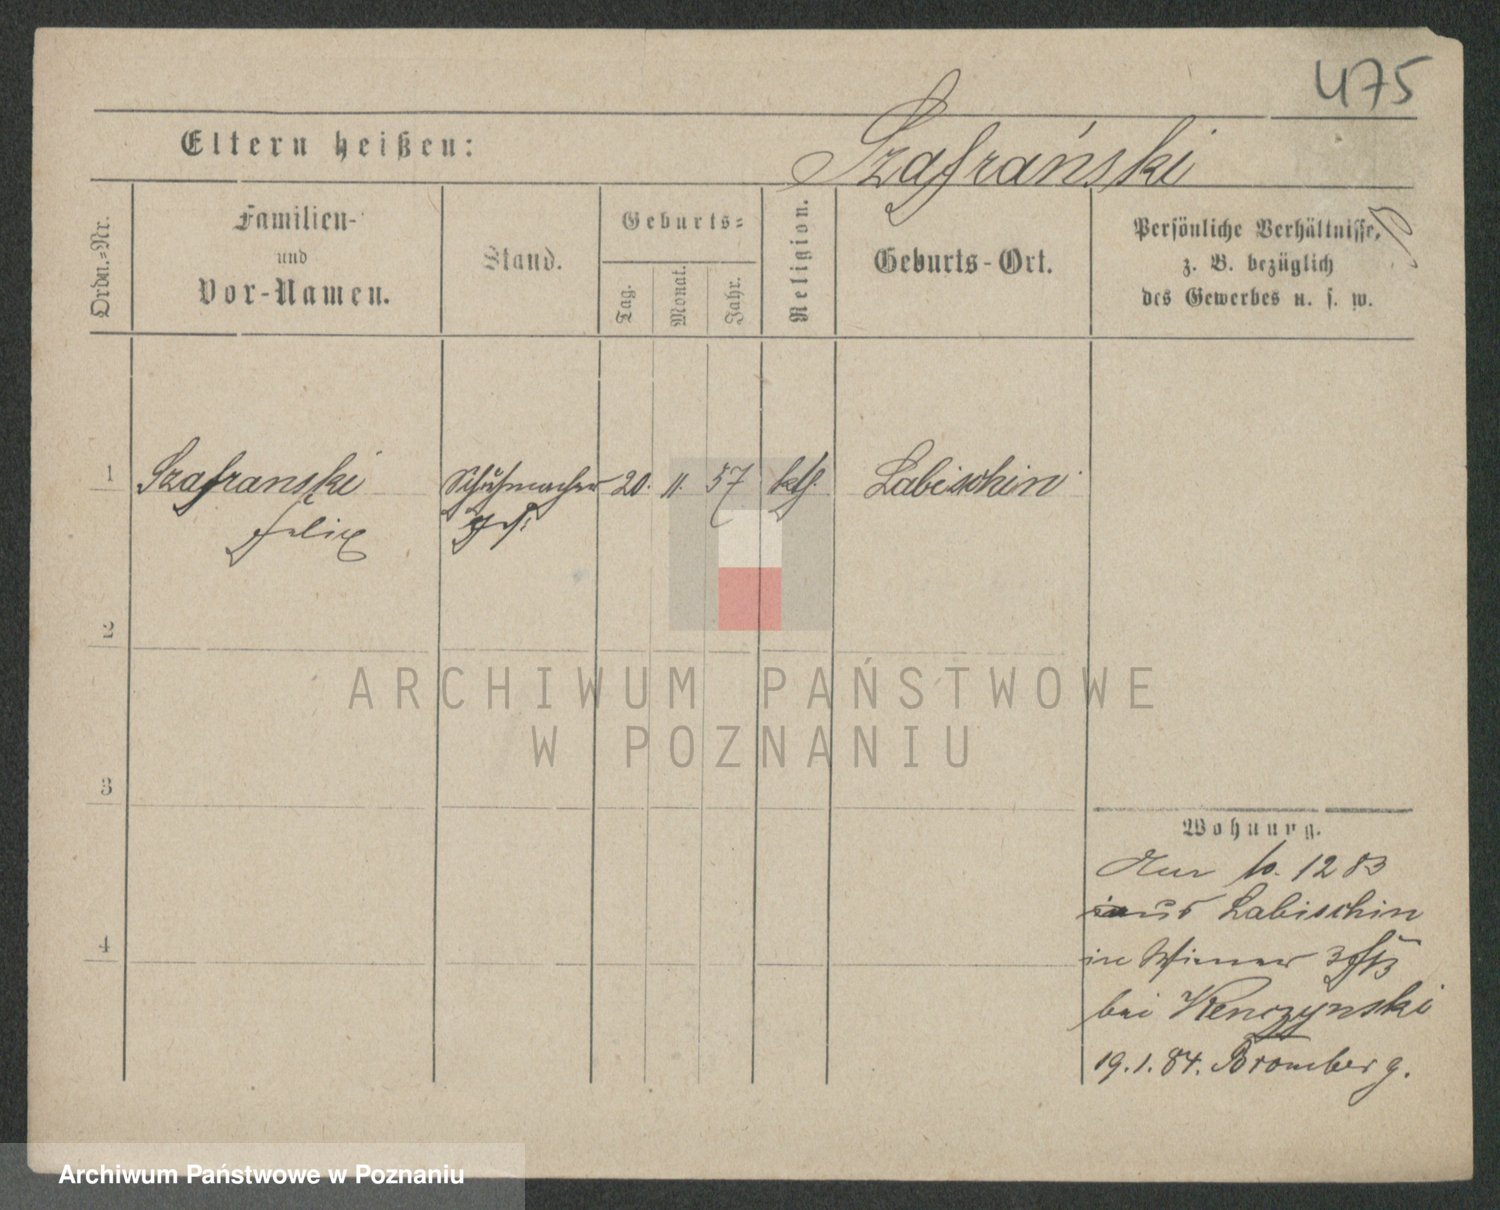 475
Eltern heißen:
Szafrański
Ordn.=Nr.
Familien-
und
Vor-Namen.
Stand.
Geburts=
Tag.
Monat.
Jahr.
Religion.
Geburts-Ort.
Persönliche Verhältnisse,
z. B. bezüglich
des Gewerbes u. s. w.
1 Szafranski Schuhmacher 20. 11. 57 kth. Labischin
Felix
2
ARCHIWUM PAŃSTWOWE
W POZNANIU
3
Wohnung.
10. 12 83
aus Labischin
4
in
bei Wenczynski
19. 1. 84. Bromberg.
Archiwum Państwowe w Poznaniu